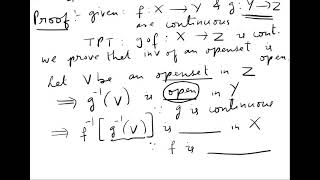 Proof :- given : f : X → Y & g : Y → Z
are continuous
TPT : gof : X → Z is cont.
we prove that inv of an openset is open
Let V be an openset in Z
⇒ g⁻¹(V) is open in Y
∵ g is continuous
⇒ f⁻¹[g⁻¹(V)] is ____ in X
∵ f is ______